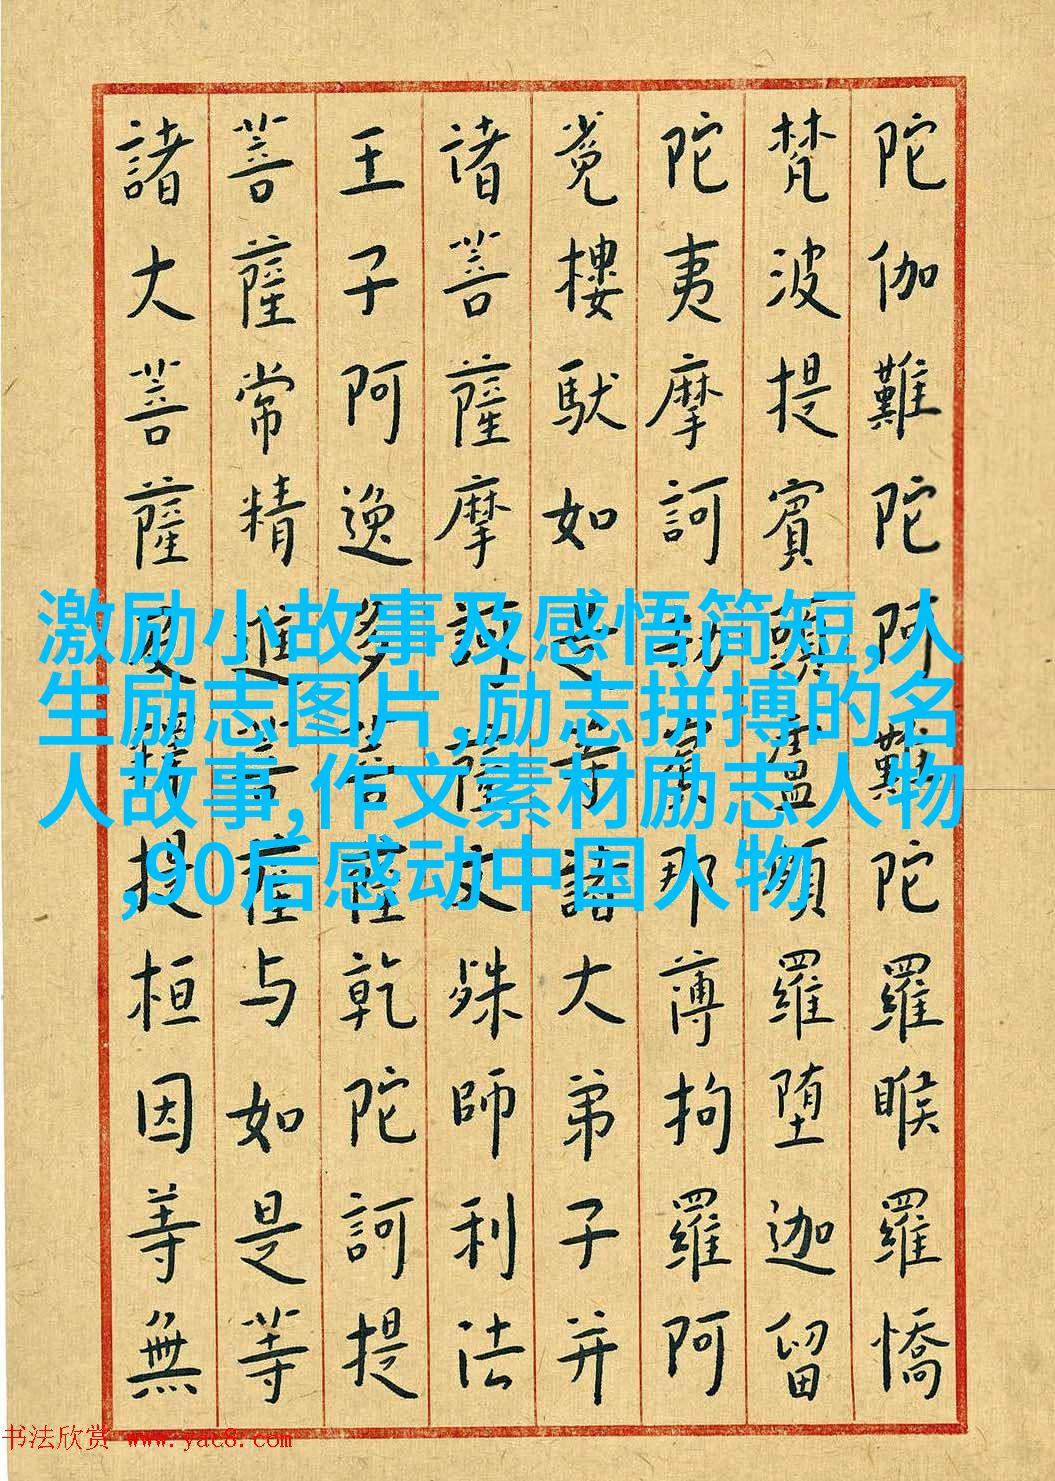 陀伽難陀阿難陀羅睺羅憍
梵波提賓頭盧頗羅堕迦留
陀夷摩訶劫賓那薄拘羅阿
㝹樓馱如是等諸大弟子并
诸菩薩摩訶薩文殊師利法
王子阿逸多菩薩乾陀訶提
菩薩常精進菩薩与如是等
諸大菩薩及釋提桓因等無
激励小故事及感悟简短,人
生励志图片,励志拼搏的名
人故事,作文素材励志人物
,90后感动中国人物
书法欣赏 www.yac8.com